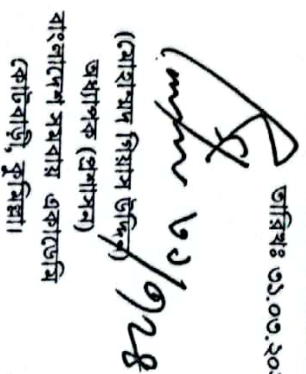 তারিখঃ ৩১.০৩.২০২
৩১/৩/২৪
(মোহাম্মদ গিয়াস উদ্দিন)
অধ্যাপক (প্রশাসন)
বাংলাদেশ সমবায় একাডেমি
কোটবাড়ী, কুমিল্লা।